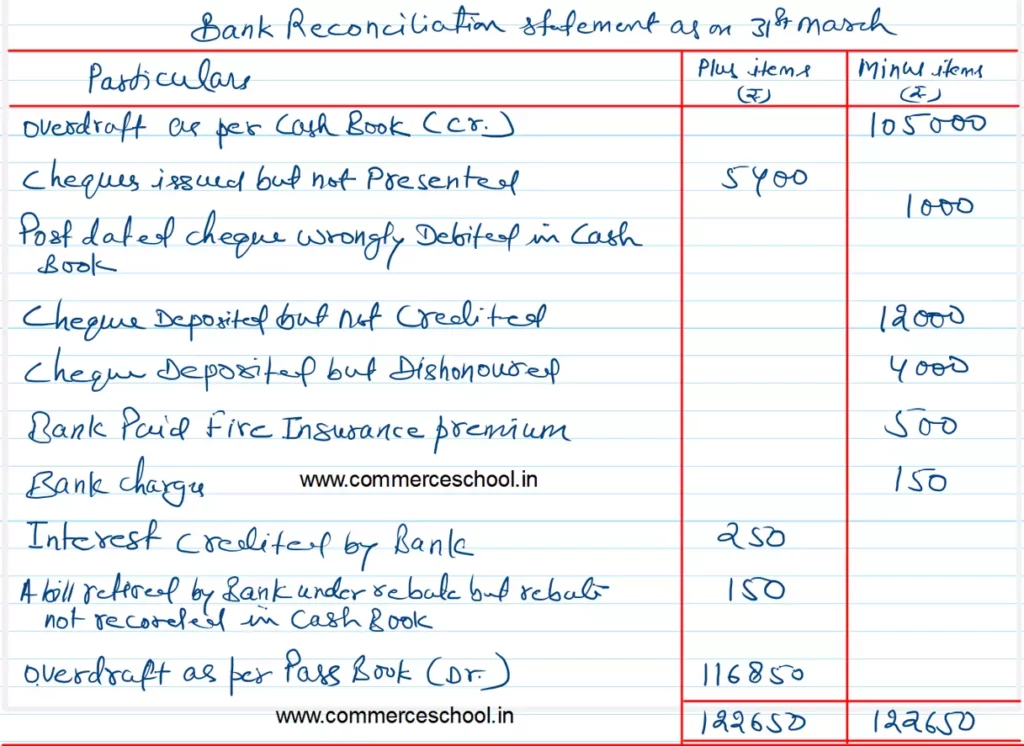 Bank Reconciliation statement as on 31st March
Particulars Plus items (₹) Minus items (₹)
Overdraft as per Cash Book (Cr.) 105000
Cheques issued but not Presented 5400
1000
Post dated cheque wrongly Debited in Cash
Book
Cheque Deposited but not Credited 12000
Cheque Deposited but Dishonoured 4000
Bank Paid Fire Insurance premium 500
Bank charges www.commerceschool.in 150
Interest credited by Bank 250
A bill retired by Bank under rebate but rebate 150
not recorded in Cash Book
Overdraft as per Pass Book (Dr.) 116850
www.commerceschool.in 122650 122650